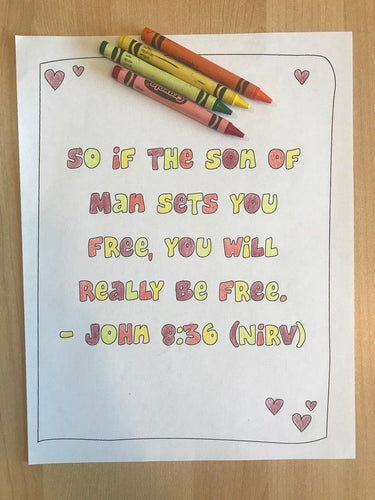 So if the Son of
Man sets you
free, you will
really be free.
- John 8:36 (NiRV)
Crayola